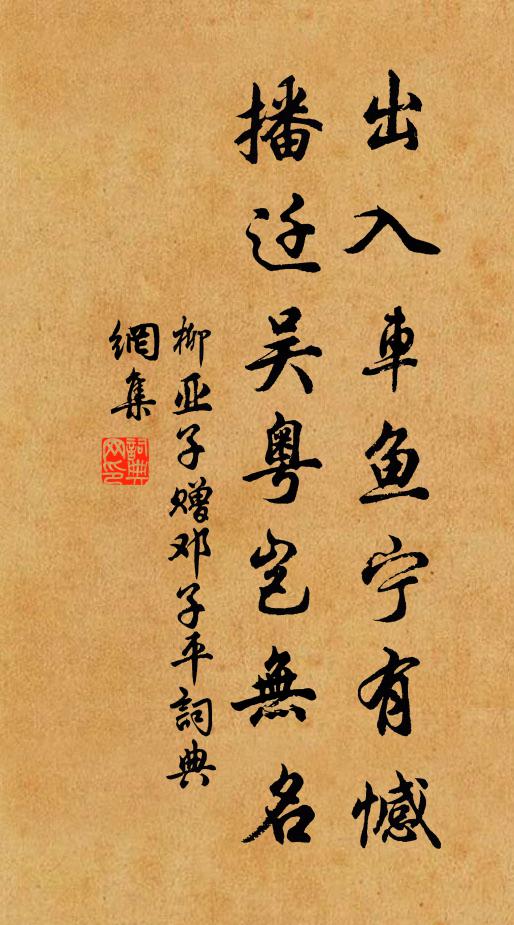 出入車鱼宁有憾
播迁吴粤岂無名
柳亚子赠邓子平詞典
網集
詞典网印